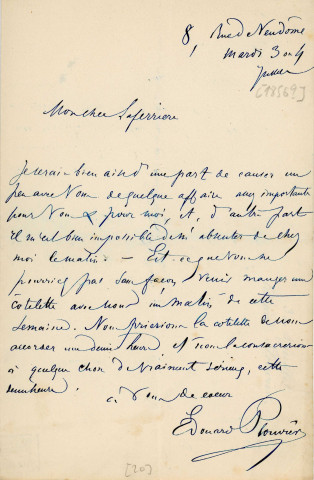 8, Rue de Vendôme
mardi 3 ou 4
Juillet
[1856?]
Mon cher Laferrière
Je serais bien aise d'une part de causer un
peu avec Vous de quelque affaire assez importante
pour Vous & pour moi, et, d'autre part
il m'est bien impossible de m'absenter de chez
moi le matin. — Est-ce que Vous ne
pourriez pas sans façon venir manger une
côtelette avec nous un matin de cette
semaine. Nous prierions la côtelette de nous
accorder une demi heure et nous la consacrerions
à quelque chose de vraiment sérieux, cette
demi heure.
à Vous de coeur
Edouard Plouvier
[20]